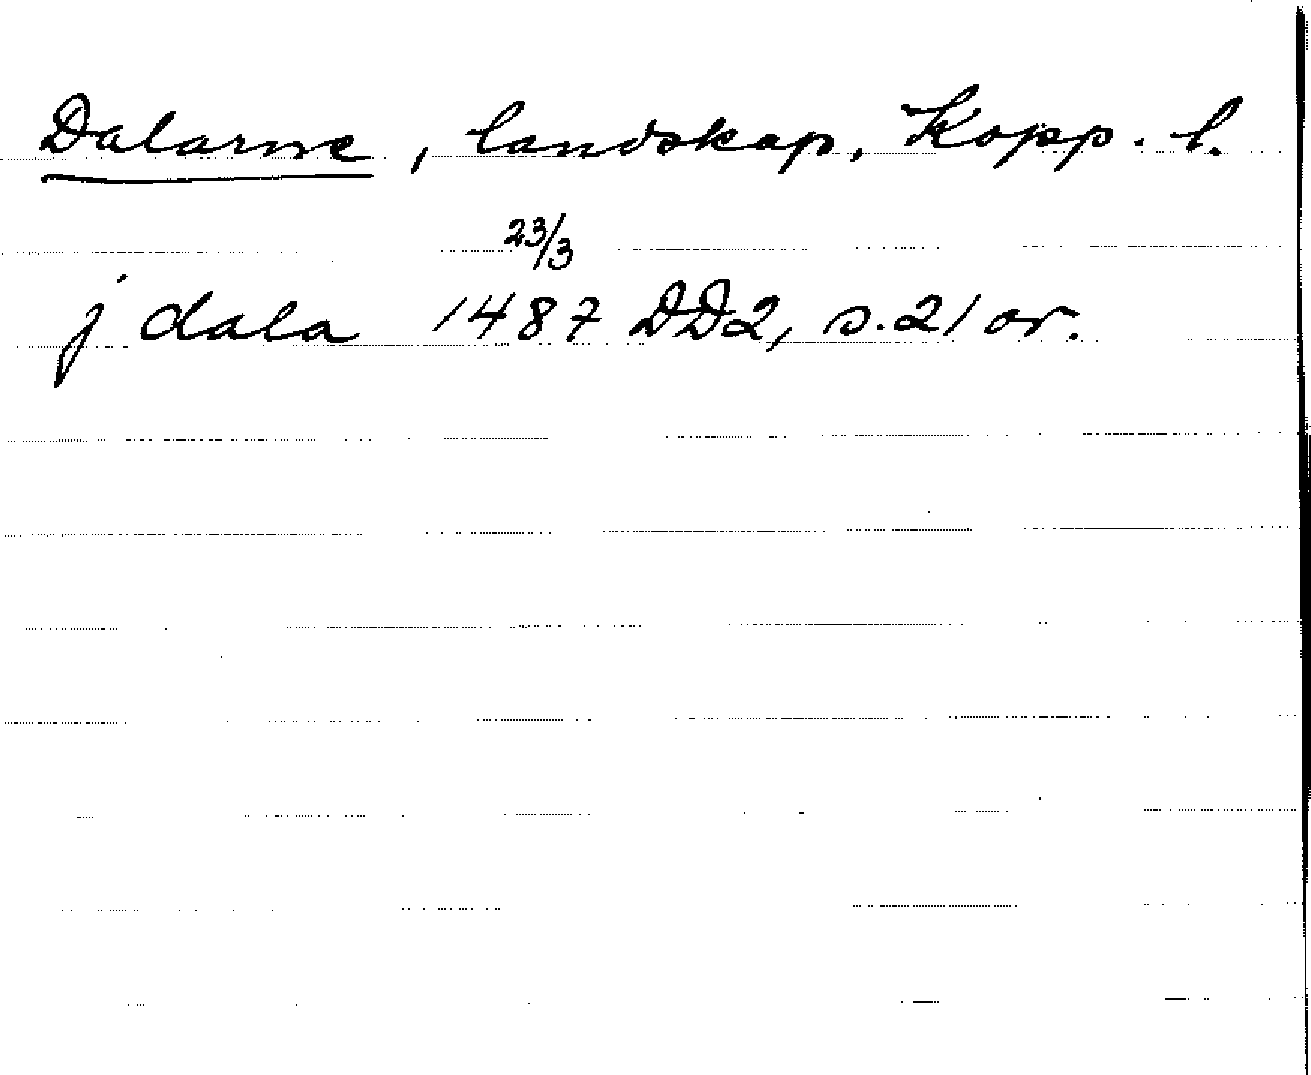 Dalarne, landskap, Kopp. l.
23/3
j dala 1487 DD2, s. 21 or.